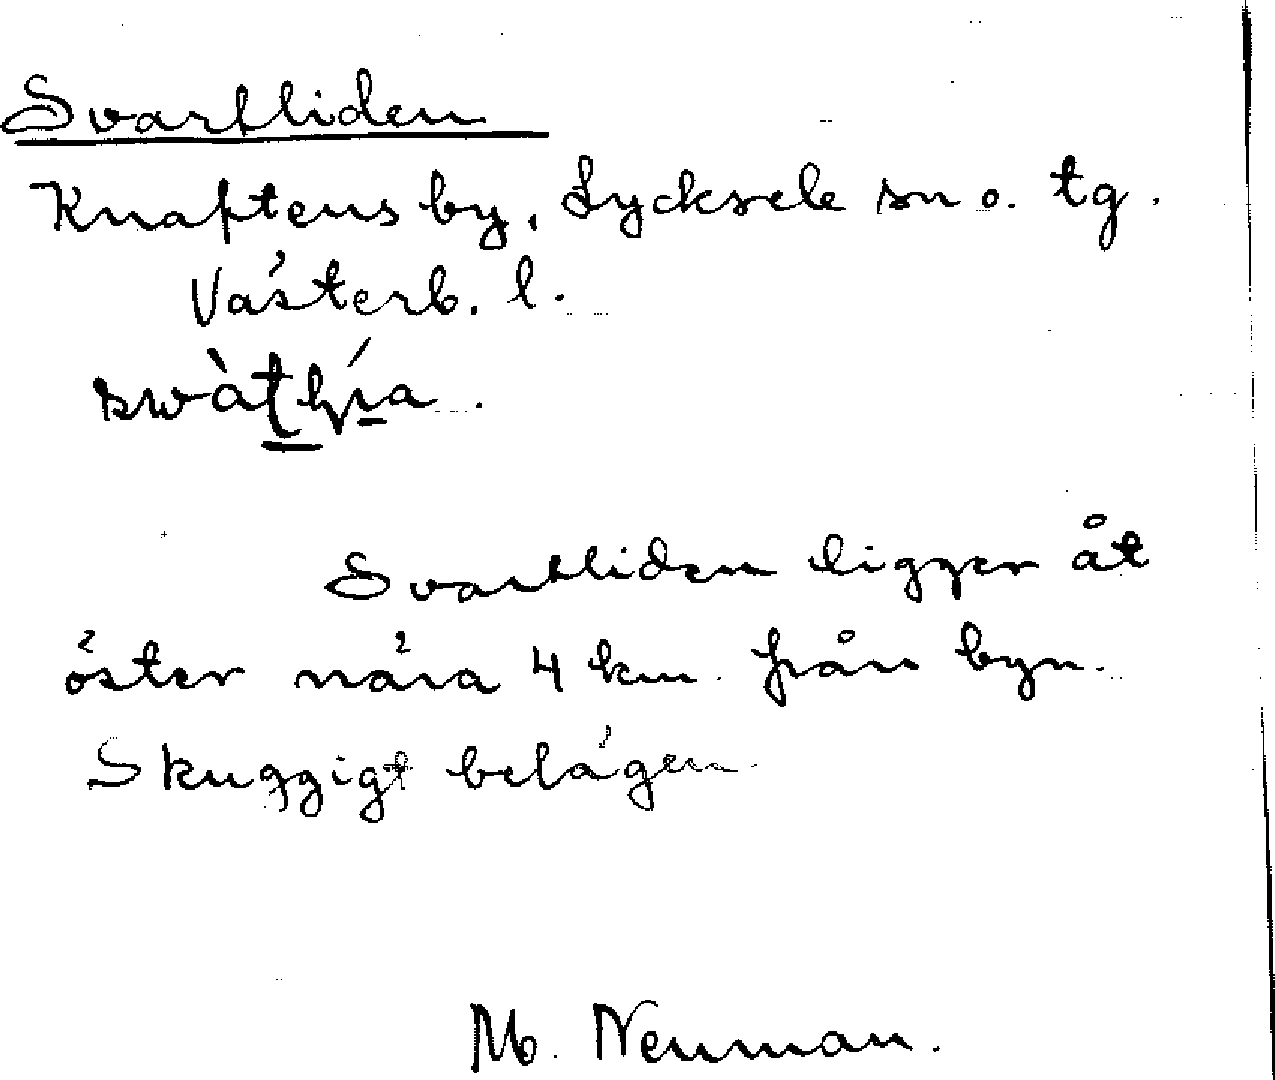 Svartliden
Knaftens by, Lycksele sn o. tg.
Västerb. l.
Svartliden ligger åt
öster nära 4 km. från byn.
Skuggigt belägen.
M. Neuman.